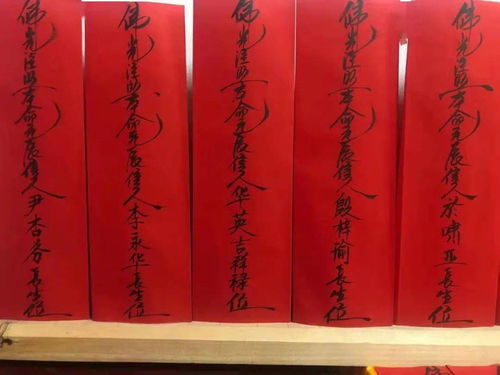 佛光注照本命元辰信人於啸亚長生位
佛光注照本命元辰信人殷梓瑜長生位
佛光注照本命元辰信人华英吉祥禄位
佛光注照本命元辰信人李永华長生位
佛光注照本命元辰信人尹杏芬長生位